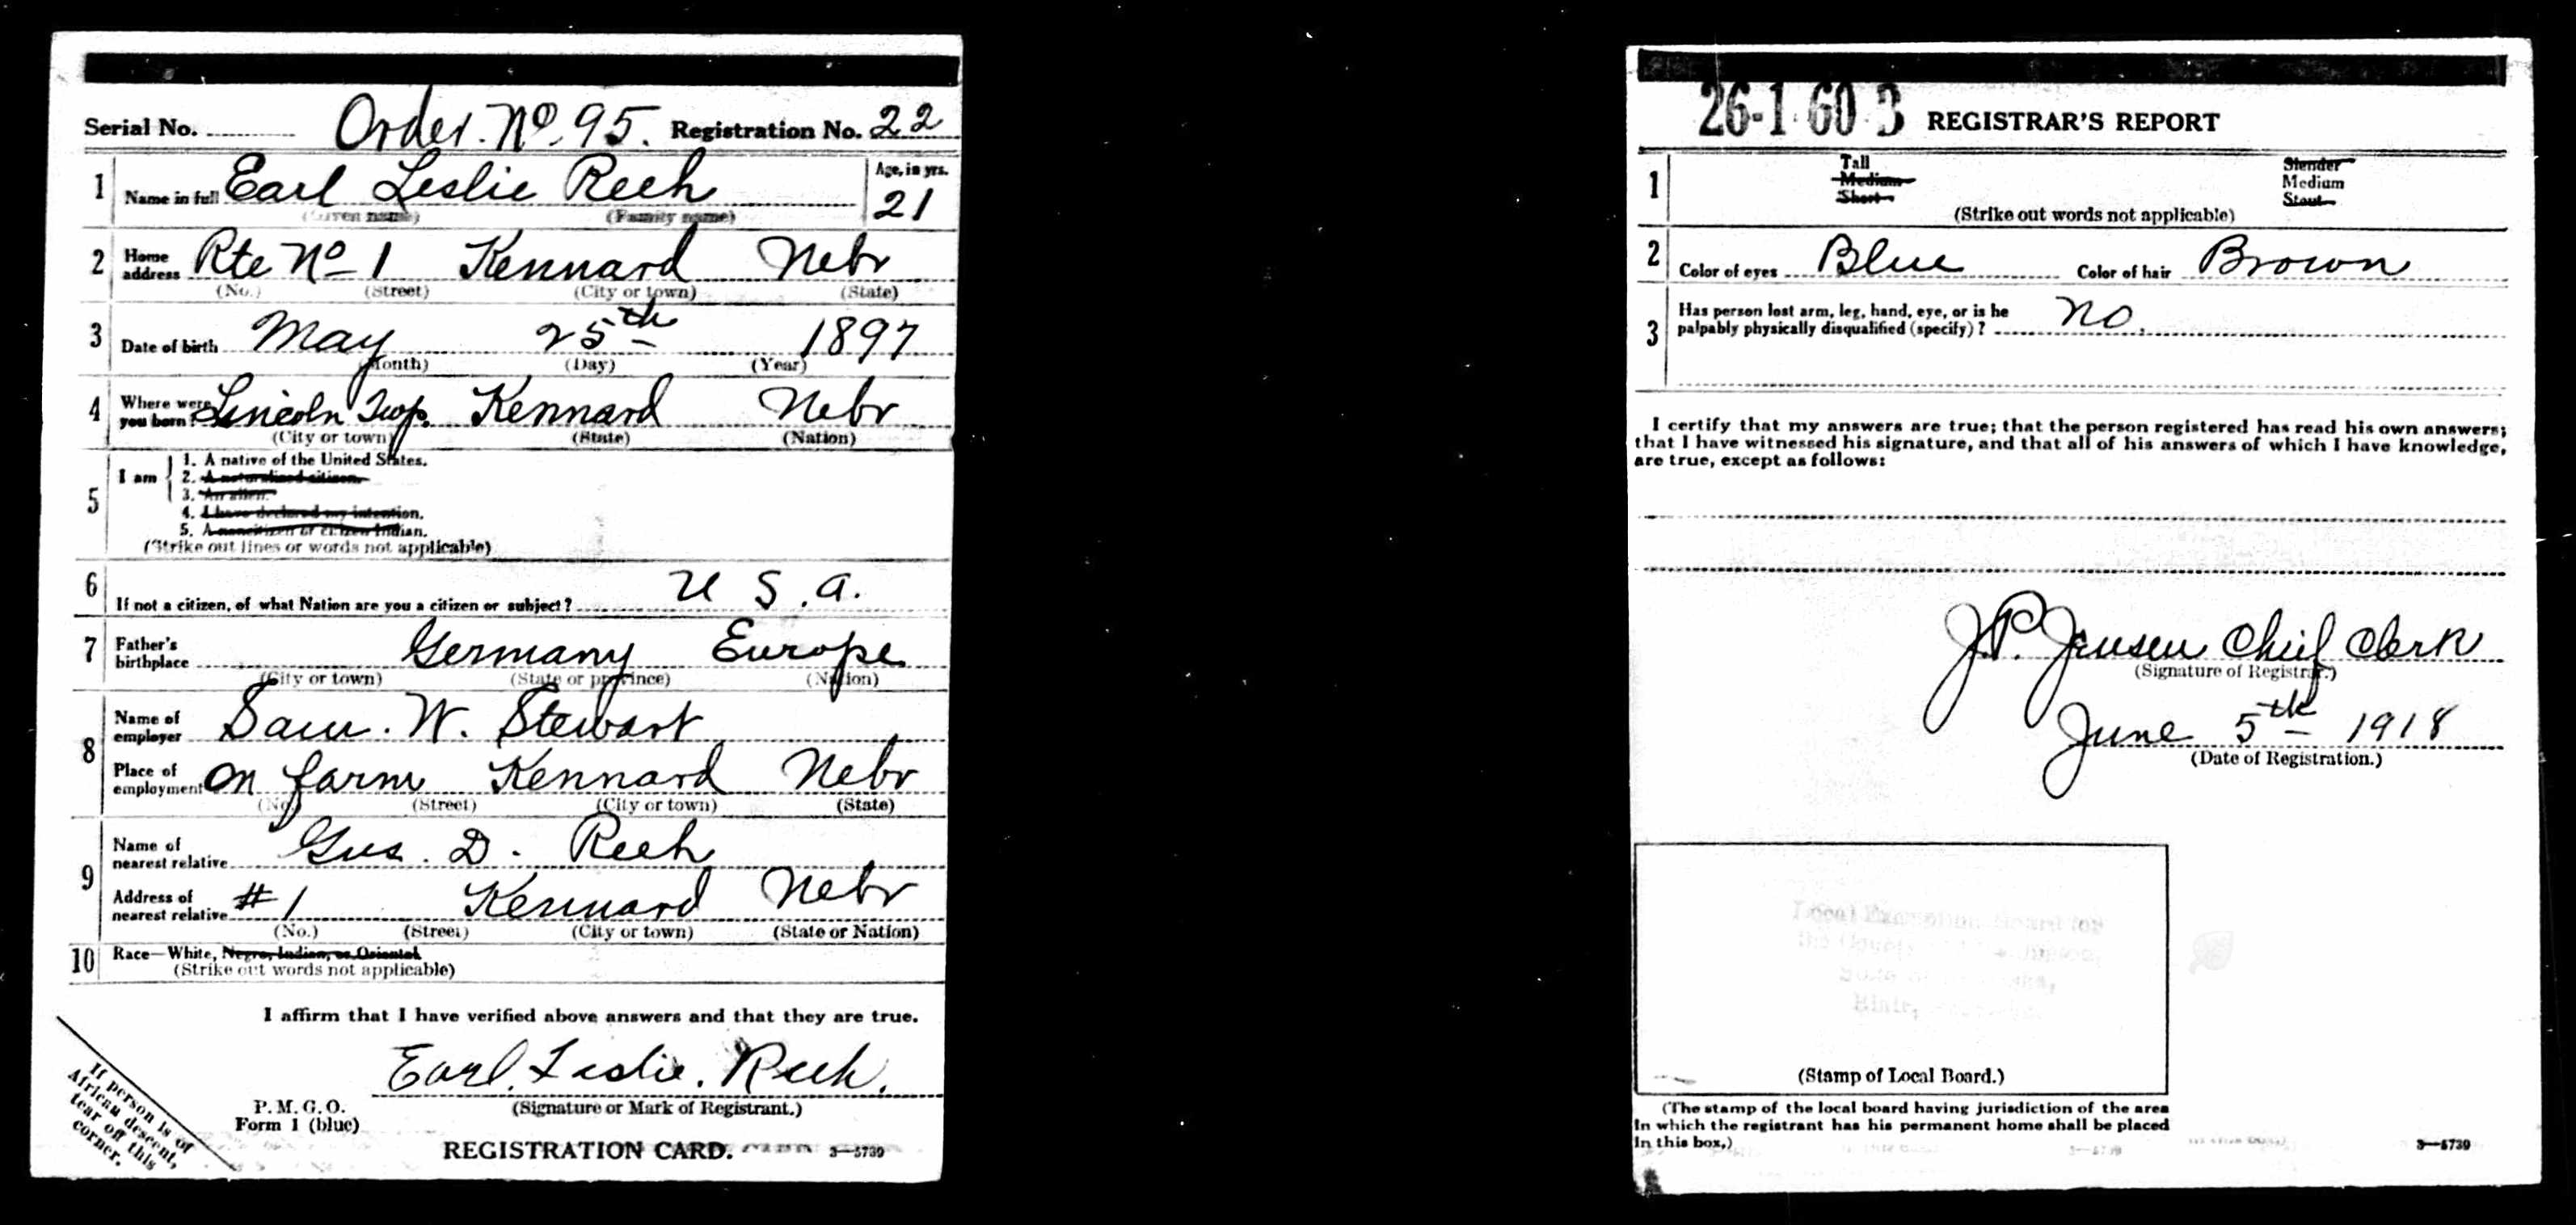 Serial No. Order. No. 95. Registration No. 22
1 Name in full Earl Leslie Reeh Age, in yrs.
(Given name) (Family name) 21
2 Home address Rte No 1 Kennard Nebr
(No.) (Street) (City or town) (State)
3 Date of birth May 25th 1897
(Month) (Day) (Year)
4 Where were you born? Lincoln Twp. Kennard Nebr
(City or town) (State) (Nation)
5 I am
1. A native of the United States.
2. A naturalized citizen.
3. An alien.
4. I have declared my intention.
5. A noncitizen or citizen Indian.
(Strike out lines or words not applicable)
6 If not a citizen, of what Nation are you a citizen or subject? U S. A.
7 Father's birthplace Germany Europe
(City or town) (State or province) (Nation)
8 Name of employer Sam. W. Stewart
Place of employment On farm Kennard Nebr
(No.) (Street) (City or town) (State)
9 Name of nearest relative Gus. D. Reeh
Address of nearest relative # 1 Kennard Nebr
(No.) (Street) (City or town) (State or Nation)
10 Race—White, Negro, Indian, or Oriental
(Strike out words not applicable)
I affirm that I have verified above answers and that they are true.
Earl. Leslie. Reeh.
(Signature or Mark of Registrant.)
P. M. G. O.
Form 1 (blue)
REGISTRATION CARD. 3—5739
If person is of
African descent,
tear off this
corner.
26-1-60 3 REGISTRAR'S REPORT
1 Tall Slender
Medium Medium
Short Stout
(Strike out words not applicable)
2 Color of eyes Blue Color of hair Brown
3 Has person lost arm, leg, hand, eye, or is he
palpably physically disqualified (specify)? No.
I certify that my answers are true; that the person registered has read his own answers;
that I have witnessed his signature, and that all of his answers of which I have knowledge,
are true, except as follows:
J.P. Jensen Chief Clerk
(Signature of Registrar.)
June 5th 1918
(Date of Registration.)
Local Exemption Board for
the County
Blair,
(Stamp of Local Board.)
(The stamp of the local board having jurisdiction of the area
in which the registrant has his permanent home shall be placed
in this box.)
3—5739